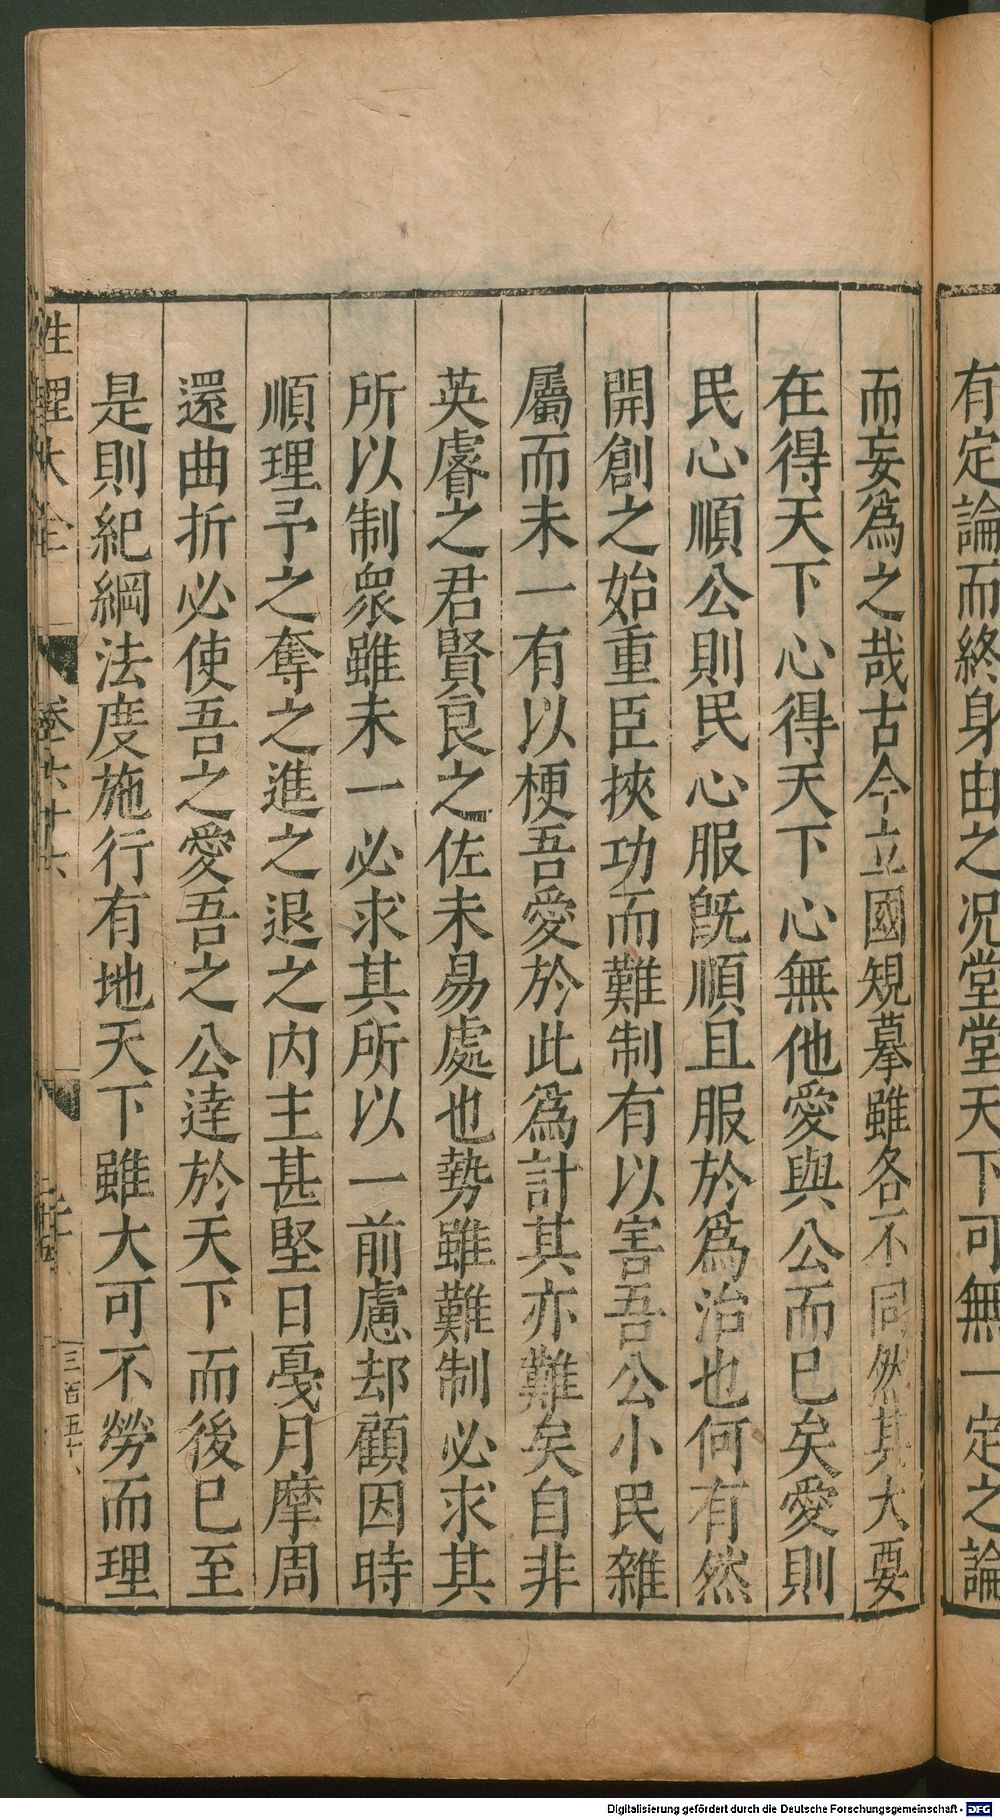 有定論而終身由之况堂堂天下可無一定之論
而妄爲之哉古今立國規摹雖各不同然其大要
在得天下心得天下心無他愛與公而已矣愛則
民心順公則民心服旣順且服於爲治也何有然
開創之始重臣挾功而難制有以害吾公小民雜
屬而未一有以梗吾愛於此爲計其亦難矣自非
英睿之君賢良之佐未易處也勢雖難制必求其
所以制衆雖未一必求其所以一前慮却顧因時
順理予之奪之進之退之内主甚堅日戞月摩周
還曲折必使吾之愛吾之公達於天下而後已至
是則紀綱法度施行有地天下雖大可不勞而理
性理大全 卷六十六
三百五十
Digitalisierung gefördert durch die Deutsche Forschungsgemeinschaft - DFG